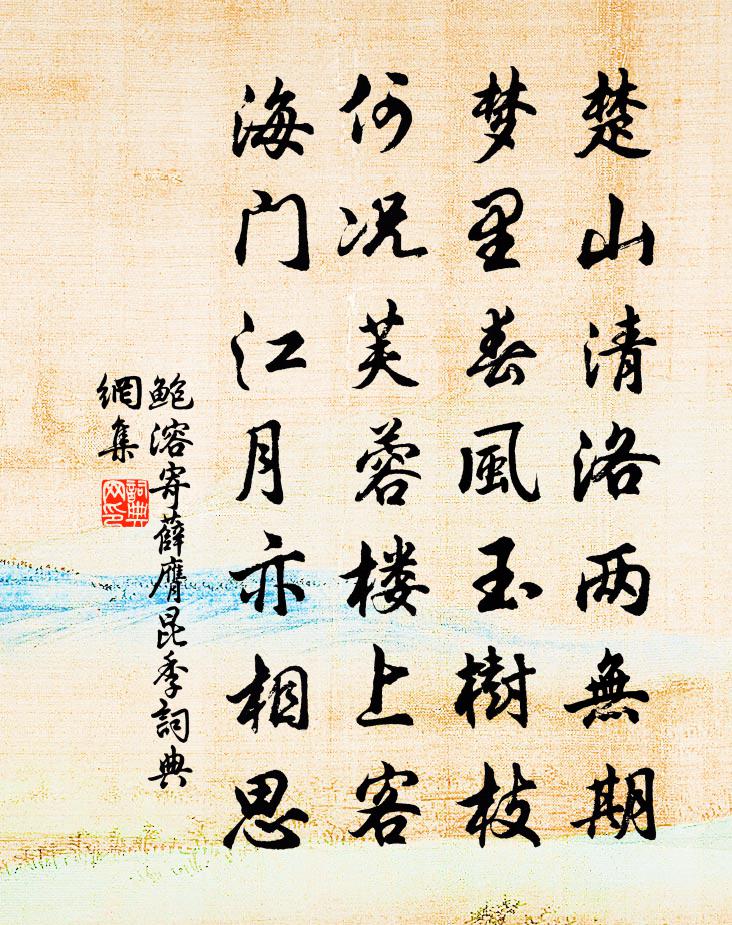 楚山清洛两無期
梦里春風玉樹枝
何况芙蓉楼上客
海门江月亦相思
鲍溶寄薛膺昆季詞典
網集
詞典
网印